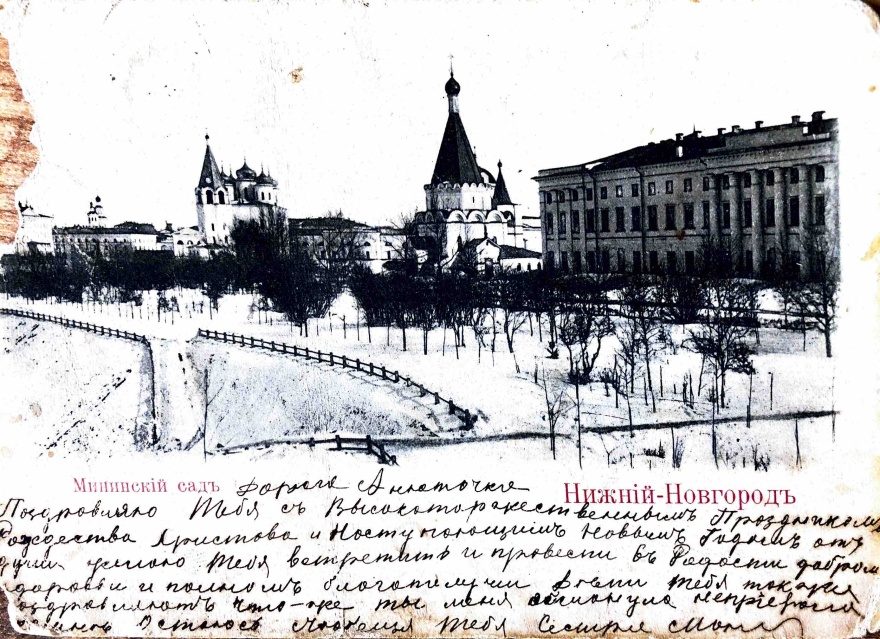 Мининскій садъ Дорогая Анюточка Нижній-Новгородъ
Поздровляю Тебя съ Высокоторжественнымъ Праздникомъ
Рождества Христова и Наступающимъ Новымъ Годомъ отъ
души желаю Тебя встретить и провести въ Радости добромъ
здоровьи и полномъ благополучии Тебя также
поздровляютъ что-же ты меня обманула не
Остаюсь Любящая Тебя Сестра